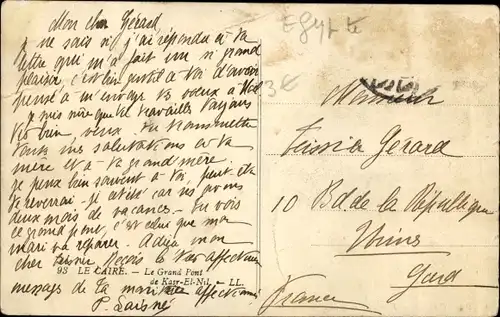 Mon cher Gérard
je ne sais si j'ai répondu à ta
lettre qui m'a fait un si grand
plaisir, c'est bien gentil à toi d'avoir
pensé à m'envoyer tes voeux à Noël
je suis sûre que tu travailles toujours
très bien, veux-tu transmettre
toutes mes salutations à ta
mère et à ta grand mère.
je pense bien souvent à toi, peut être
te reverrai-je cet été car nous avons
deux mois de vacances - tu vois
ce grand pont, c'est celui que mon
mari va réparer. Adieu mon
cher Reçois le très affectueux
message de ta
P. Laisné
93 LE CAIRE. - Le Grand Pont
de Kasr-El-Nil. - LL.
Egypte
3€
Monsieur
Teissier Gérard
10 Bd. de la République
Nîmes
Gard
France